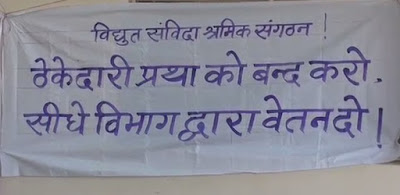 विद्युत संविदा श्रमिक संगठन !
ठेकेदारी प्रथा को बन्द करो.
सीधे विभाग द्वारा वेतन दो !